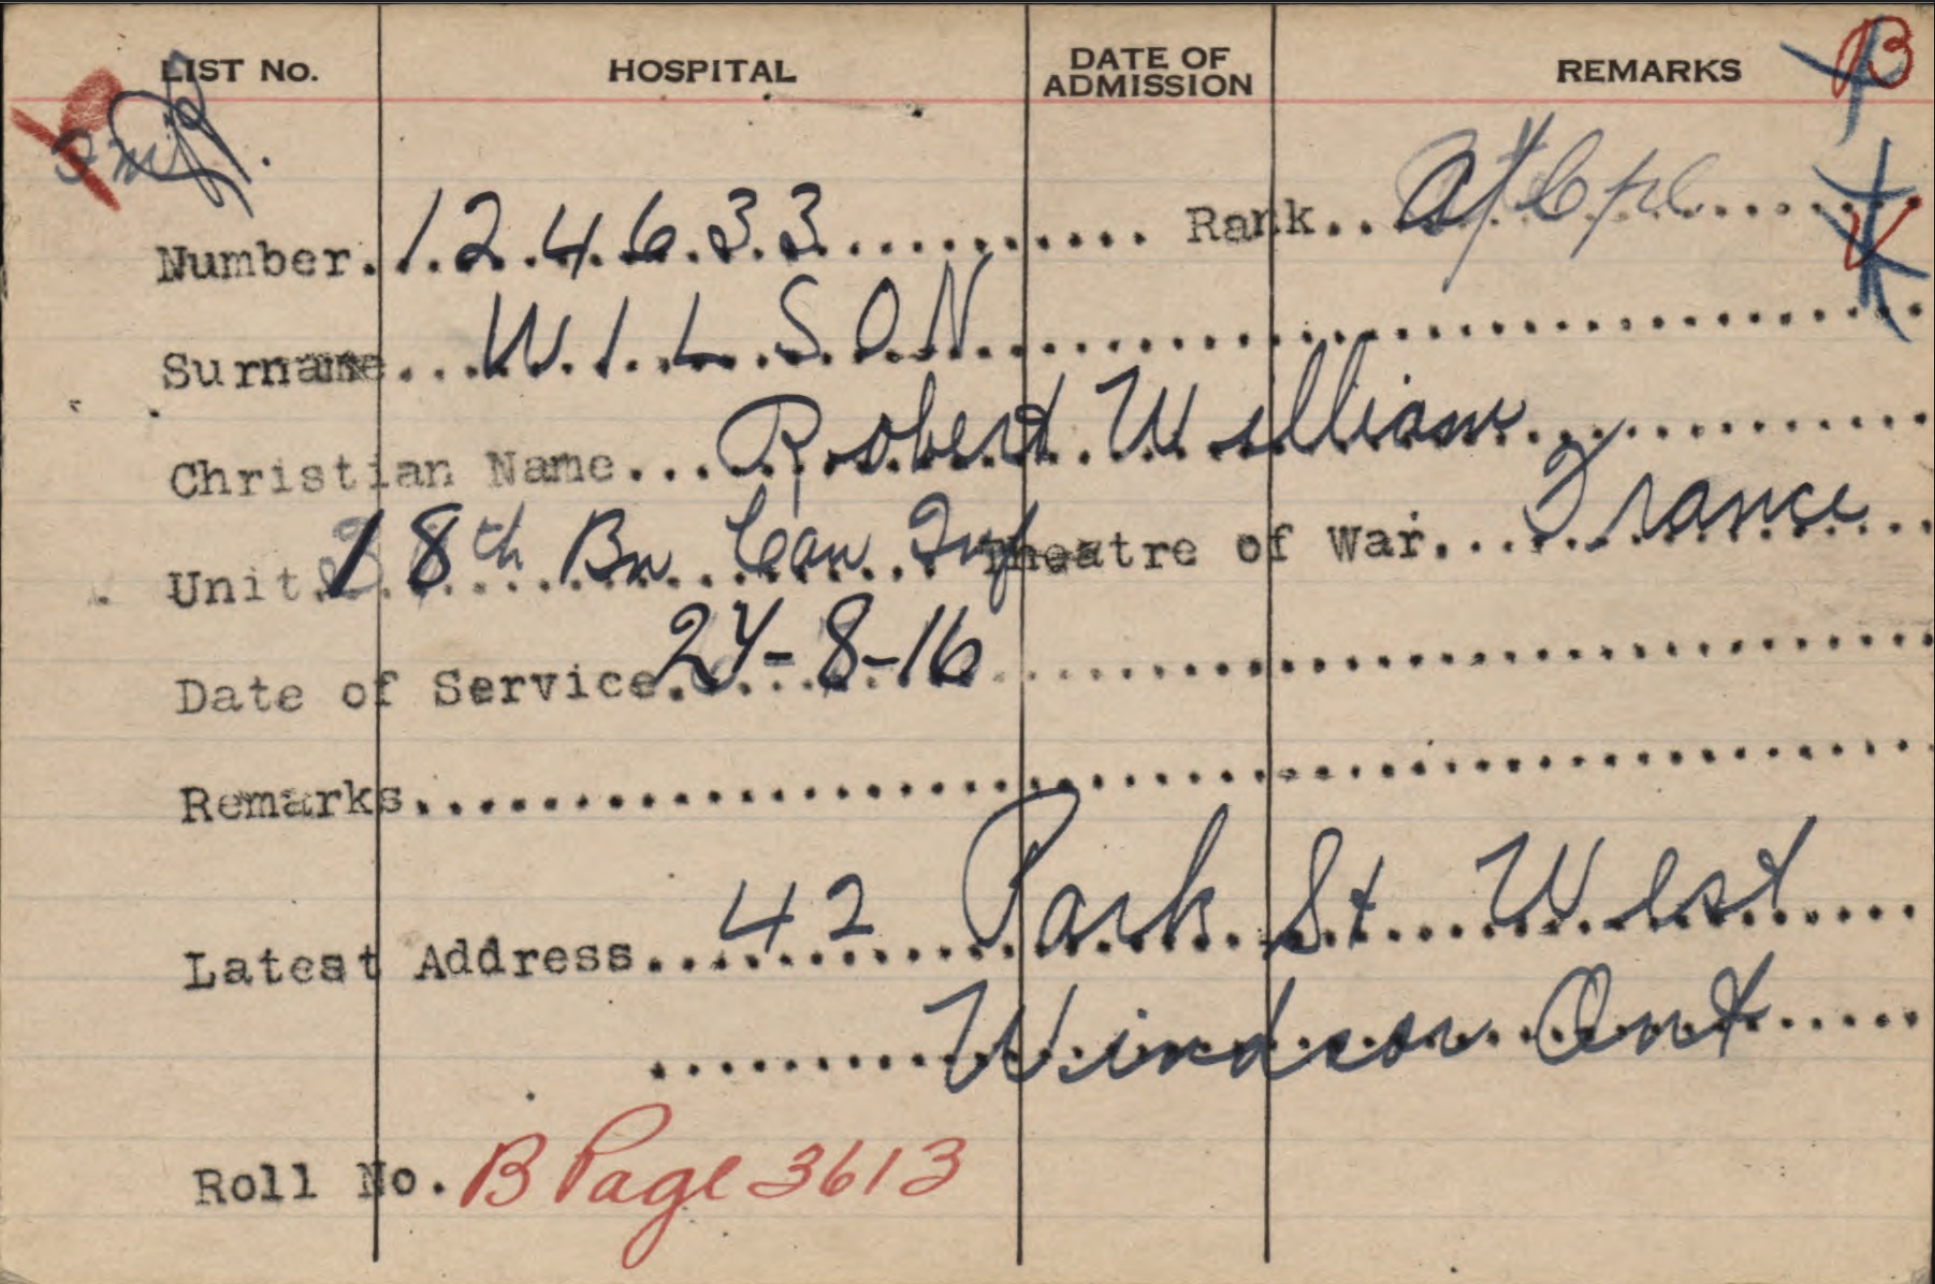 LIST No. HOSPITAL DATE OF ADMISSION REMARKS B
Number. 124633 Rank.. a/Cpl
V
Surname... WILSON
Christian Name... Robert William
Unit. 18th Bn Can Inf Theatre of War. France
Date of Service. 24-8-16
Remarks
Latest Address 42 Park St West
Windsor Ont
Roll No. B Page 3613